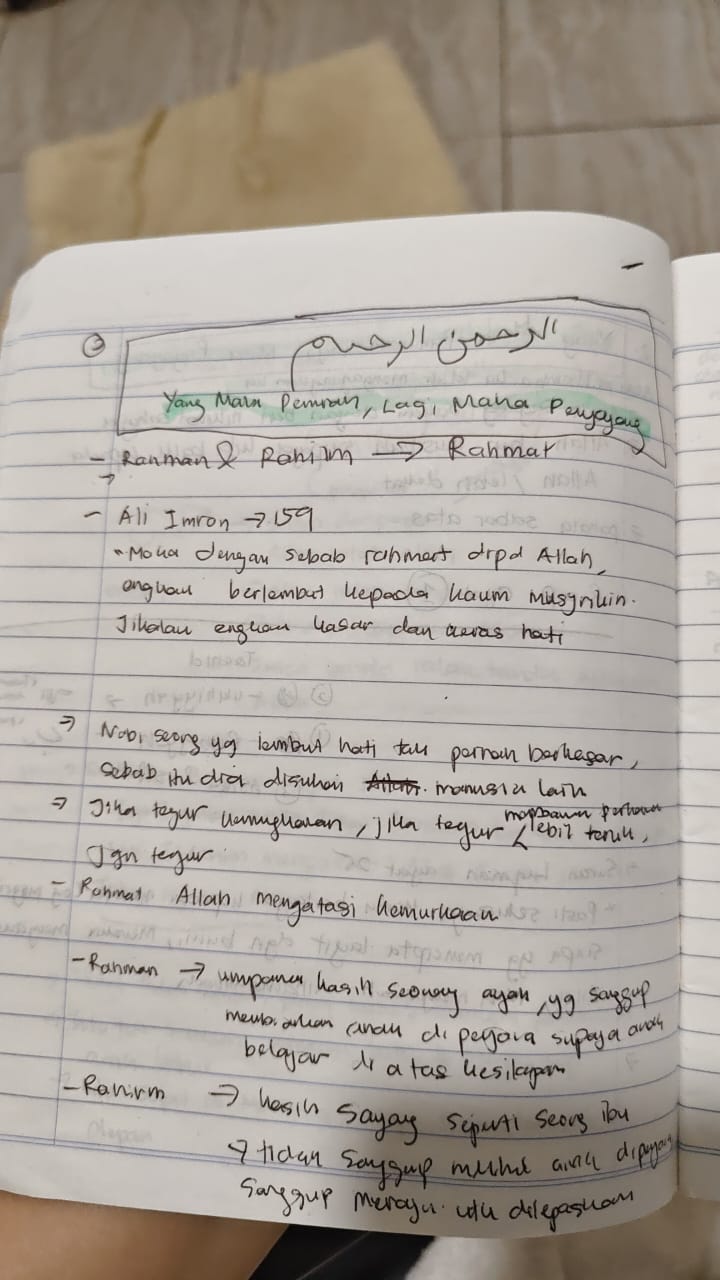 ③ الرحمن الرحيم
Yang Maha Pemurah, Lagi Maha Penyayang
- Rahman & Rahiim → Rahmat
→
- Ali Imron → 159
"Maka dengan sebab rahmat drpd Allah,
engkau berlembut kepada kaum musyrikin.
Jikalau engkau kasar dan keras hati
→ Nabi seorg yg lembut hati tak pernah berkasar,
sebab itu dia disukai manusia lain
→ Jika tegur kemungkaran, jika tegur membawa perkara lebih teruk,
Jgn tegur
- Rahmat Allah mengatasi kemurkaan
- Rahman → umpama kasih seorang ayah, yg sanggup
membiarkan anak di penjara supaya anak
belajar di atas kesilapan
- Rahirm → kasih sayang seperti seorg ibu
→ tidak sanggup melihat anak dipenjara
Sanggup merayu utk dilepaskan